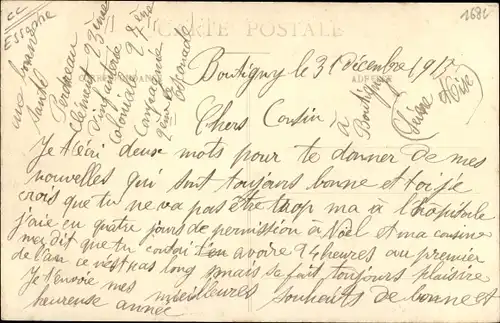 CARTE POSTALE
Boutigny le 31 Décembre, 1917
Chers Cousin,
Je t'écri deux mots pour te donner de mes
nouvelles qui sont toujours bonne et toi je
crois que tu ne va pas être trop ma à l'hopitale
j'aie eu quatre jours de permission à Noël et ma cousine
mas dit que tu contai t'en avoire 24 heures au premier
de l'an ce n'est pas long mais sa fait toujours plaisire
Je t'envoie mes meilleures souhaits de bonne et
heureuse année
une bonne
santé
Clément 23ème
d'infanterie
Coloniale 27ème
Compagnie
à
Boutigny
(Seine et Oise)
cc
Essonne